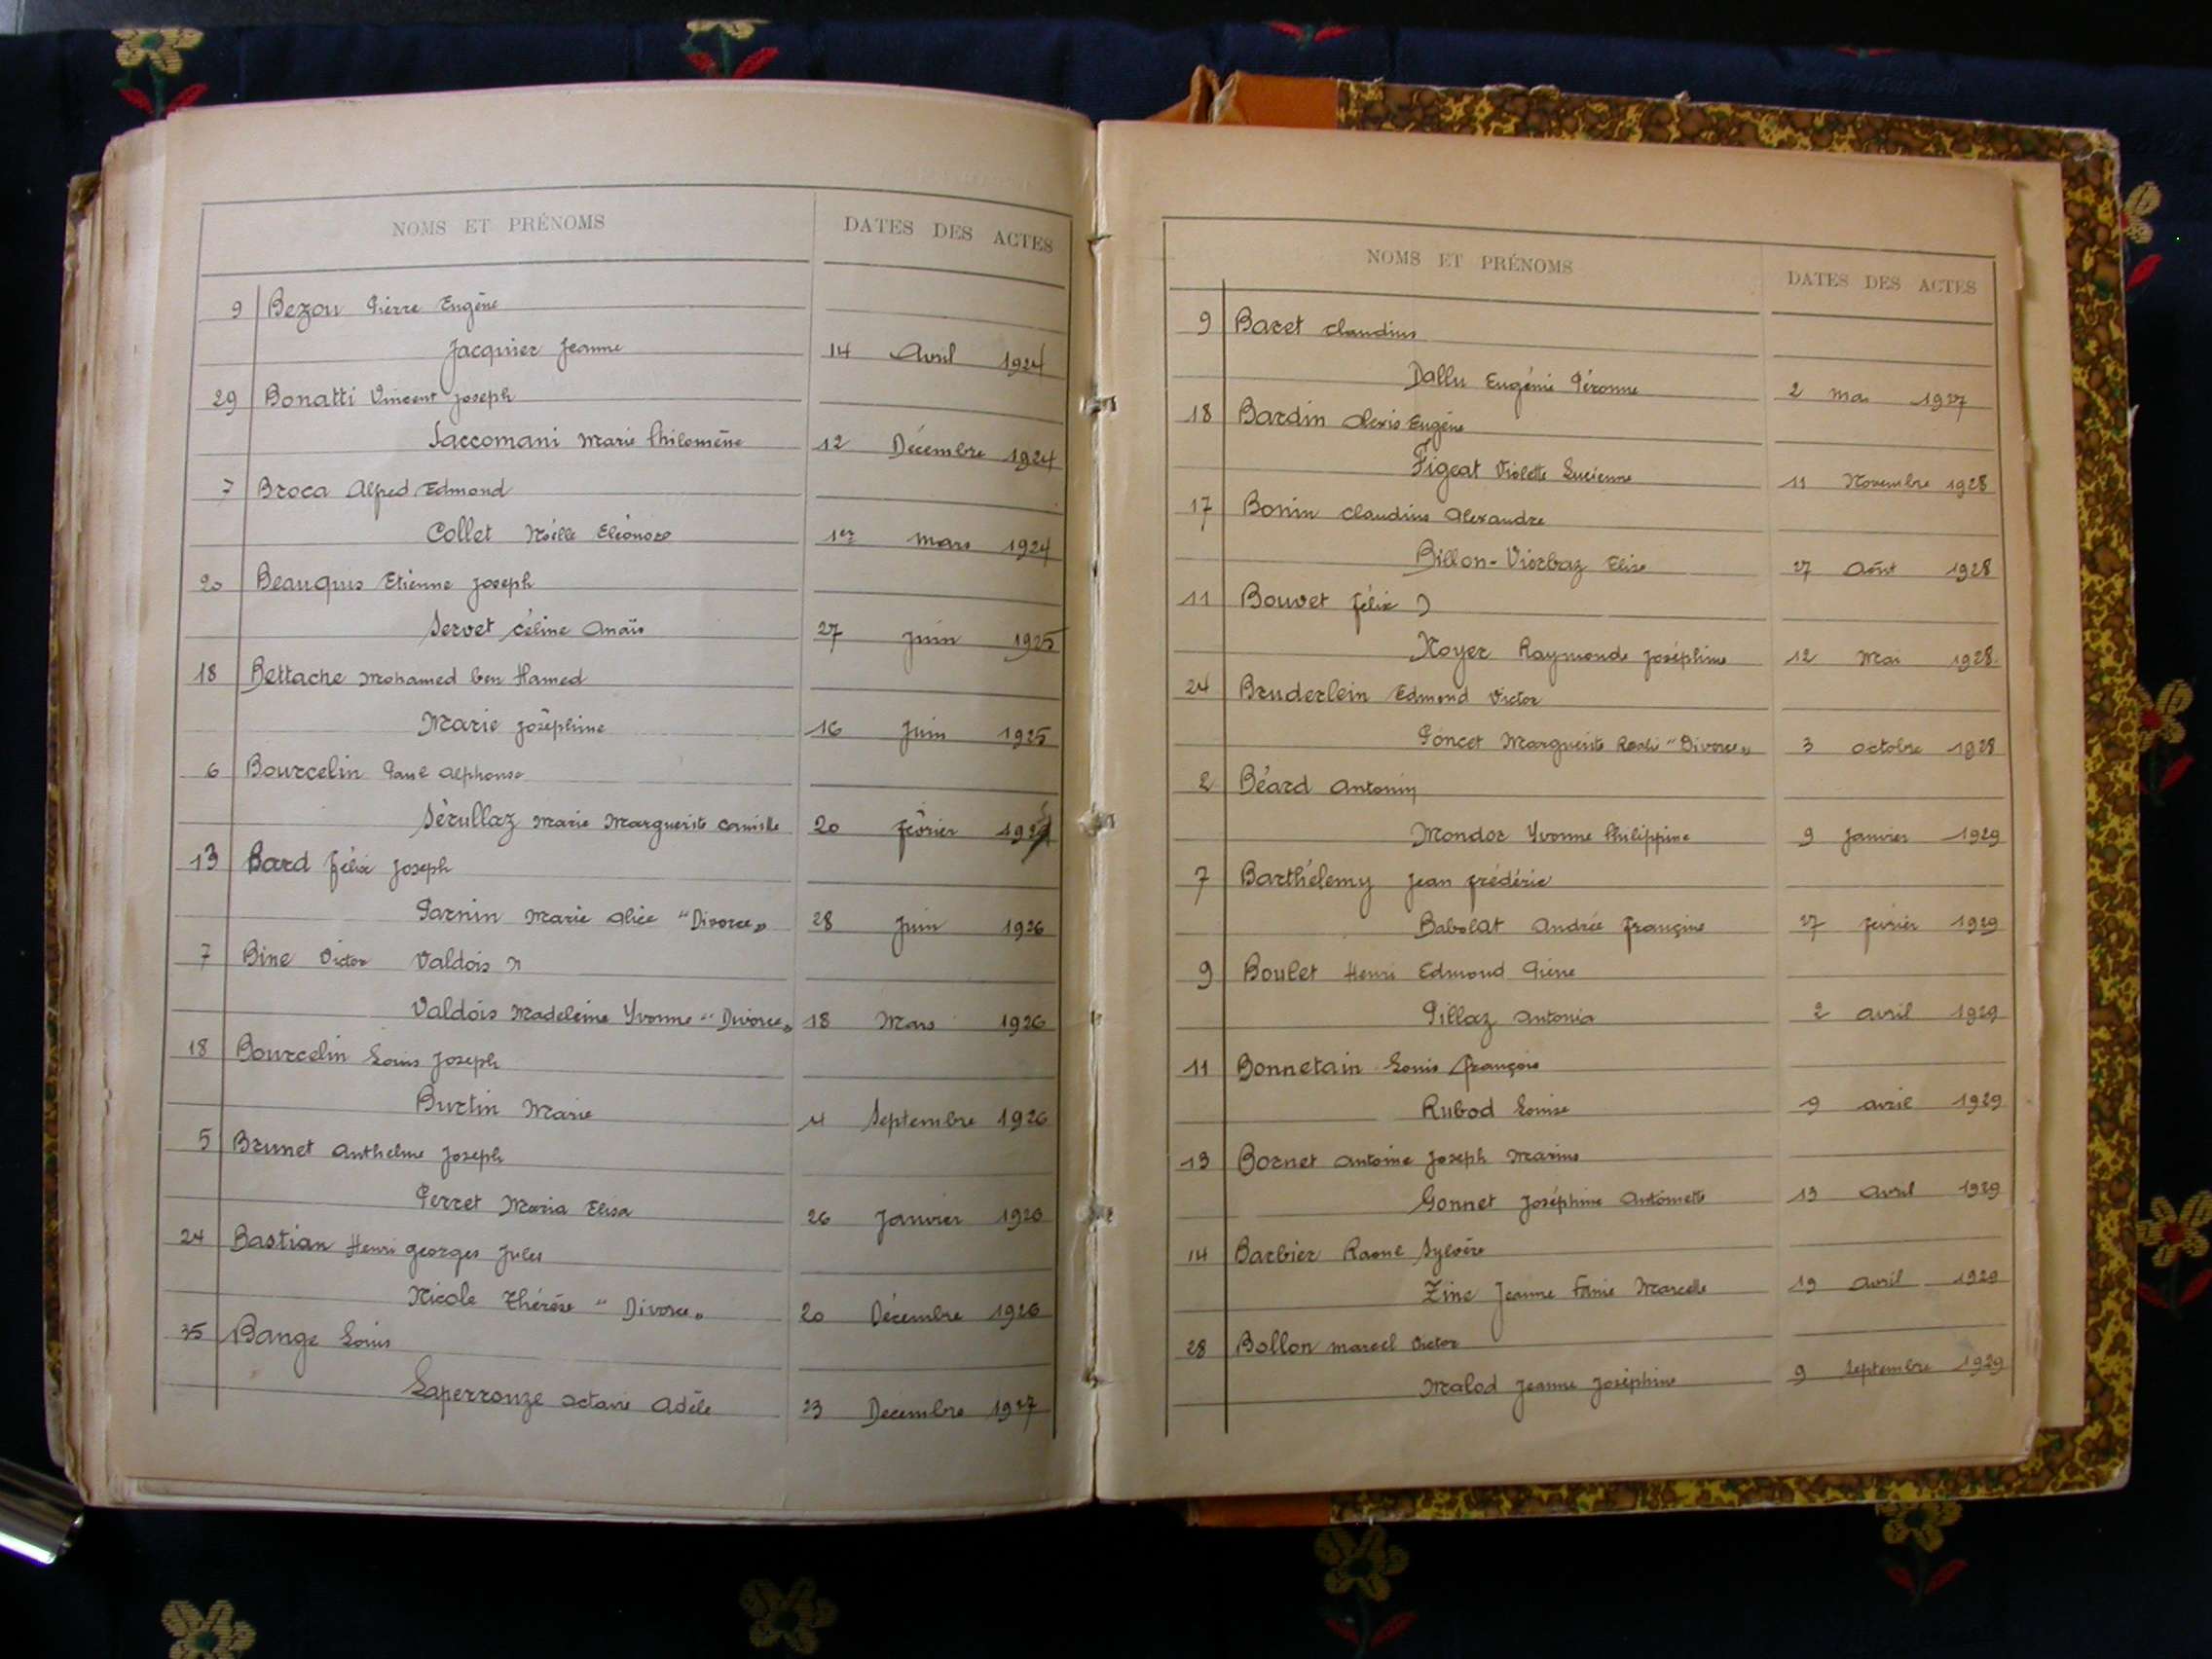 NOMS ET PRÉNOMS DATES DES ACTES
9 Bezou Pierre Eugène
Jacquier Jeanne 14 Avril 1924
29 Bonatti Vincent Joseph
Saccomani Marie Philomène 12 Décembre 1924
7 Broca Alfred Edmond
Collet Noëlle Eléonore 1er mars 1924
20 Beauquis Etienne Joseph
Servet Céline Anaïs 27 Juin 1925
18 Bettache Mohamed ben Hamed
Marie Joséphine 16 Juin 1925
6 Bourcelin Paul Alphonse
Sérullaz Marie Marguerite Camille 20 février
13 Bard Félix Joseph
Parnin Marie Alice "Divorce" 28 Juin 1926
7 Bine Victor Valdois
Valdois Madeleine Yvonne "Divorce" 18 Mars 1926
18 Bourcelin Louis Joseph
Burtin Marie Septembre 1926
5 Brunet Anthelme Joseph
Perret Maria Elisa 26 Janvier 1926
24 Bastian Henri Georges Jules
Nicole Thérèse "Divorce" 20 Décembre 1926
35 Bange Louis
Laperrouze Octavie Adèle 23 Décembre 1927
NOMS ET PRÉNOMS DATES DES ACTES
9 Baret Claudius
Dallu Eugénie Péronne 2 mai 1927
18 Bardin Alexis Eugène
Figeat Violette Lucienne 11 Novembre 1928
17 Bonin Claudius Alexandre
Billon-Vierbaz Elise 27 Août 1928
11 Bouvet Félix J
Noyer Raymonde Joséphine 12 Mai 1928
24 Bruderlein Edmond Victor
Poncet Marguerite "Divorce" 3 octobre 1928
2 Béard Antonin
Mondor Yvonne Philippine 9 Janvier 1929
7 Barthélemy Jean Frédéric
Babolat Andrée Françine 27 février 1929
9 Boulet Henri Edmond Pierre
Pillaz Antonia 2 avril 1929
11 Bonnetain Louis François
Rubod Louise 9 avril 1929
13 Bornet Antoine Joseph Marius
Gonnet Joséphine Antoinette 13 Avril 1929
14 Barbier Raoul Sylvère
Zine Jeanne Fanie Marcelle 19 Avril 1929
28 Bollon Marcel Victor
Malod Jeanne Joséphine 9 Septembre 1929